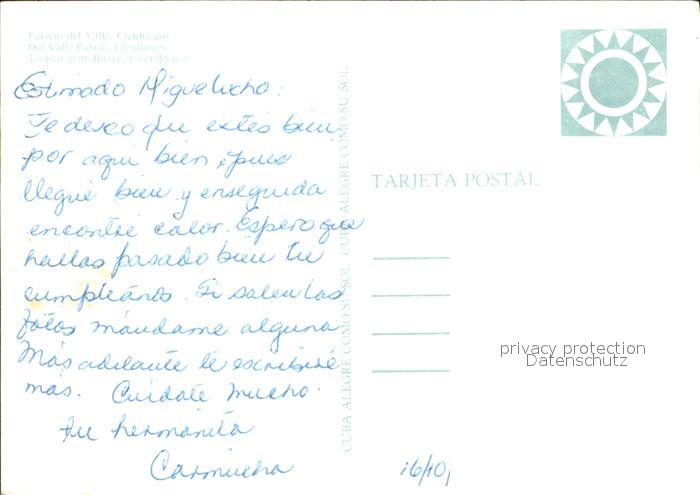 Palacio del Valle, Cienfuegos
Del Valle Palace, Cienfuegos
Дворец дель Валье, Сьенфуэгос
Estimado Miguelucho:
Te deseo que estés bien
por aquí bien, pues
llegué bien y enseguida
encontré calor. Espero que
hallas pasado bien tu
cumpleaños. Si salen las
fotos mándame alguna
Más adelante te escribiré
más. Cuídate mucho.
tu hermanita
Carmucha
16/10,
CUBA ALEGRE COMO SU SOL CUBA ALEGRE COMO SU SOL
TARJETA POSTAL
privacy protection
Datenschutz